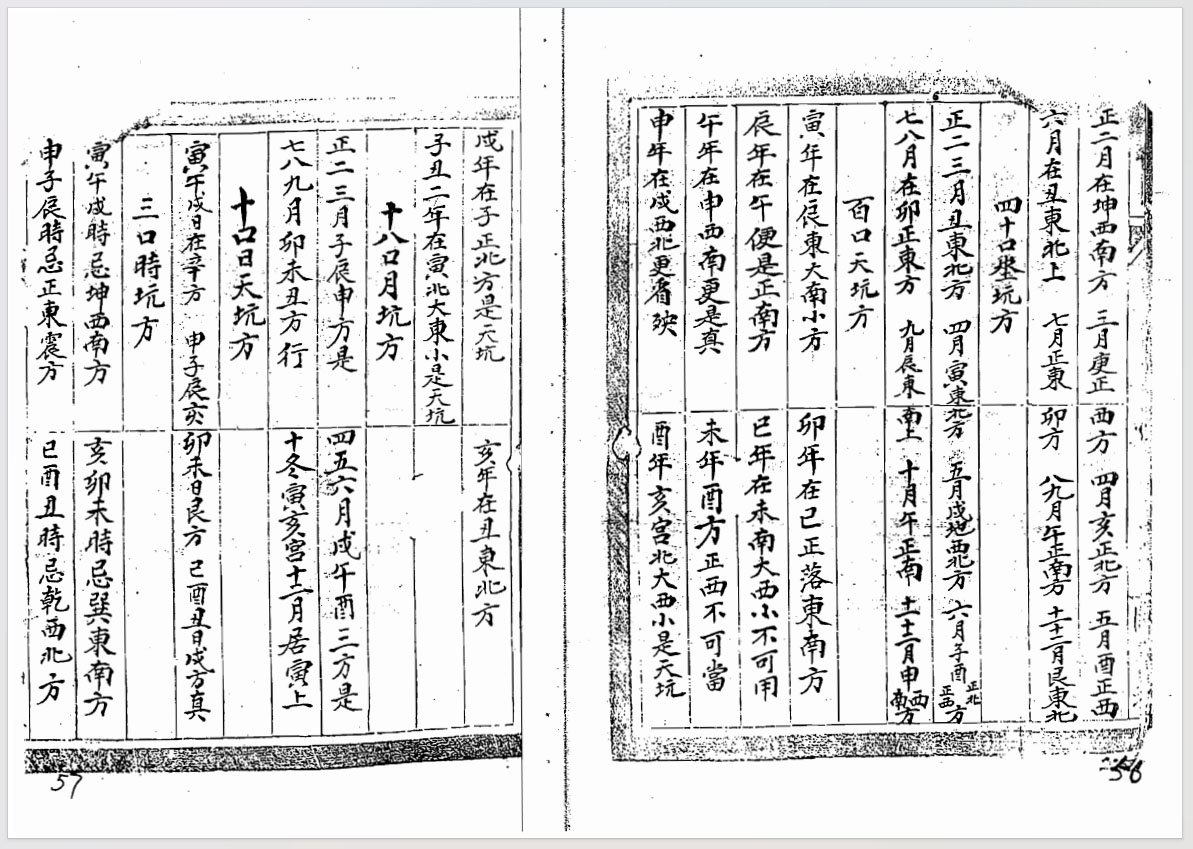 正二月在坤西南方 三月庚正西方 四月亥正北方 五月酉正西
六月在丑東北上 七月正東卯方 八九月午正南方 十一十二月艮東北
四十口坐坑方
正二三月丑東北方 四月寅東北方 五月戌地西北方 六月子酉正北正西方
七八月在卯正東方 九月辰東南上 十月午正南 十一十二月申西南方
百口天坑方
寅年在辰東大南小方 卯年在巳正落東南方
辰年在午便是正南方 巳年在未南大西小不可用
午年在申西南更是真 未年酉方正西不可當
申年在戌西北更省殃 酉年亥宮北大西小是天坑
58
戌年在子正北方是天坑 亥年在丑東北方
子丑二年在寅北大東小是天坑
十八口月坑方
正二三月子辰申方是 四五六月戌午酉三方是
七八九月卯未丑方行 十冬寅亥宮十二月居寅上
十口日天坑方
寅午戌日在辛方 申子辰亥卯未日艮方 巳酉丑日戌方真
三口時坑方
寅午戌時忌坤西南方 亥卯未時忌巽東南方
申子辰時忌正東震方 巳酉丑時忌乾西北方
57